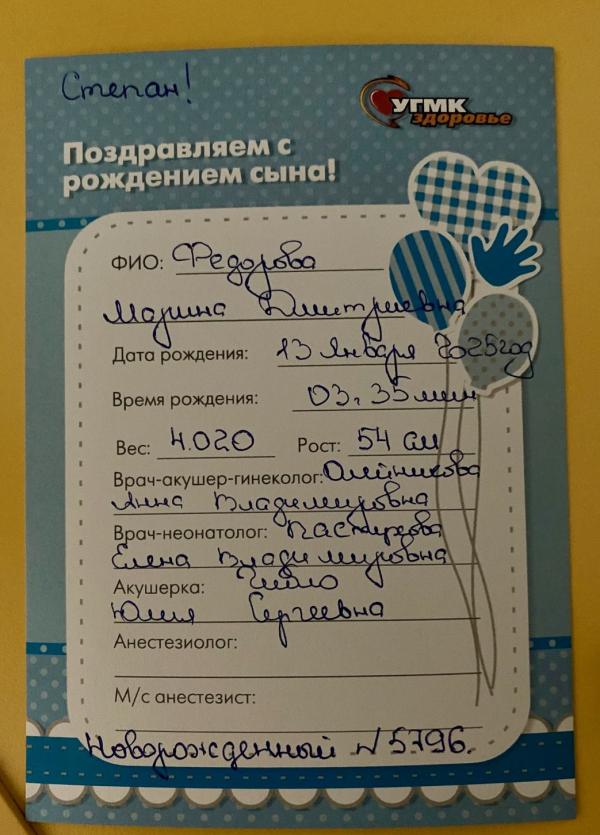 Степан!
УГМК
здоровье
Поздравляем с
рождением сына!
ФИО: Федорова
Марина Дмитриевна
Дата рождения: 13 Января 2025год
Время рождения: 03ч 35мин
Вес: 4.020 Рост: 54 см
Врач-акушер-гинеколог: Олейникова
Анна Владимировна
Врач-неонатолог:
Елена Владимировна
Акушерка:
Юлия Сергеевна
Анестезиолог:
М/с анестезист:
Новорожденный №5796.